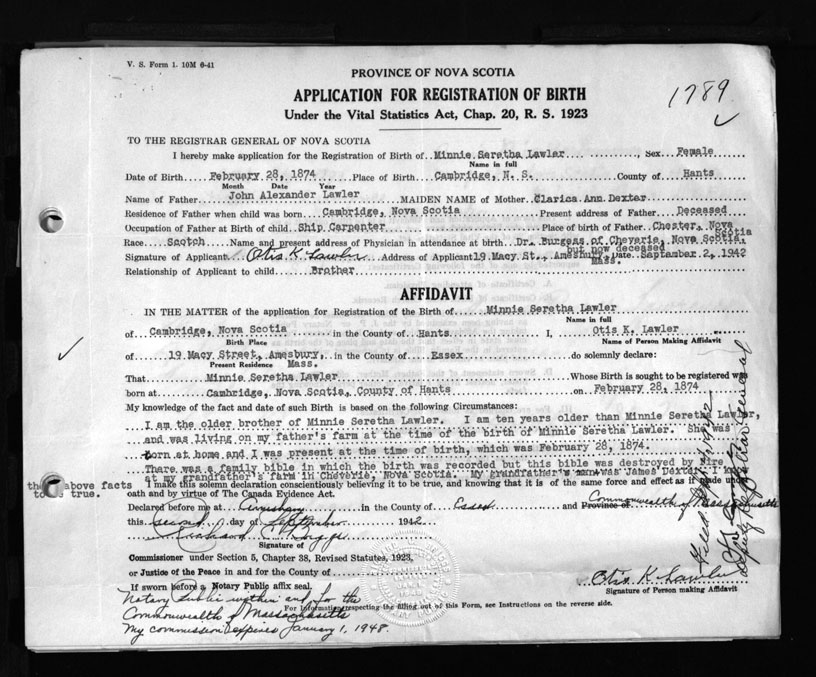 V. S. Form 1. 10M 6-41
PROVINCE OF NOVA SCOTIA
1789
APPLICATION FOR REGISTRATION OF BIRTH
Under the Vital Statistics Act, Chap. 20, R. S. 1923
TO THE REGISTRAR GENERAL OF NOVA SCOTIA
I hereby make application for the Registration of Birth of Minnie Seretha Lawler, Sex Female
Name in full
Date of Birth February 28, 1874 Place of Birth Cambridge, N. S. County of Hants
Month Date Year
Name of Father John Alexander Lawler MAIDEN NAME of Mother Clarica Ann Dexter
Residence of Father when child was born Cambridge, Nova Scotia Present address of Father Deceased
Occupation of Father at Birth of child Ship Carpenter Place of birth of Father Chester, Nova Scotia
Race Scotch Name and present address of Physician in attendance at birth Dr. Burgess of Cheverie, Nova Scotia,
but now deceased
Signature of Applicant Otis K. Lawler Address of Applicant 19 Macy St., Amesbury, Mass. Date September 2, 1942
Relationship of Applicant to child Brother
AFFIDAVIT
IN THE MATTER of the application for Registration of the Birth of Minnie Seretha Lawler
Name in full
of Cambridge, Nova Scotia in the County of Hants I, Otis K. Lawler
Birth Place Name of Person Making Affidavit
of 19 Macy Street, Amesbury, Mass. in the County of Essex do solemnly declare:
Present Residence
That Minnie Seretha Lawler Whose Birth is sought to be registered was
born at Cambridge, Nova Scotia, County of Hants on February 28, 1874
My knowledge of the fact and date of such Birth is based on the following Circumstances:
I am the older brother of Minnie Seretha Lawler. I am ten years older than Minnie Seretha Lawler,
and was living on my father's farm at the time of the birth of Minnie Seretha Lawler. She was
born at home and I was present at the time of birth, which was February 28, 1874.
There was a family bible in which the birth was recorded but this bible was destroyed by fire
at my grandfather's farm in Cheverie, Nova Scotia. My grandfather's name was James Dexter. I know
the above facts to be true.
I make this solemn declaration conscientiously believing it to be true, and knowing that it is of the same force and effect as if made under
oath and by virtue of The Canada Evidence Act.
Declared before me at Amesbury in the County of Essex and Province of Commonwealth of Massachusetts
this second day of September 1942
Signature of
Commissioner under Section 5, Chapter 38, Revised Statutes, 1923,
or Justice of the Peace in and for the County of
Otis K. Lawler
Signature of Person making Affidavit
If sworn before a Notary Public affix seal.
Notary Public within and for the
Commonwealth of Massachusetts
My commission expires January 1, 1948.
For Information respecting the filling out of this Form, see Instructions on the reverse side.
Deputy Registrar General